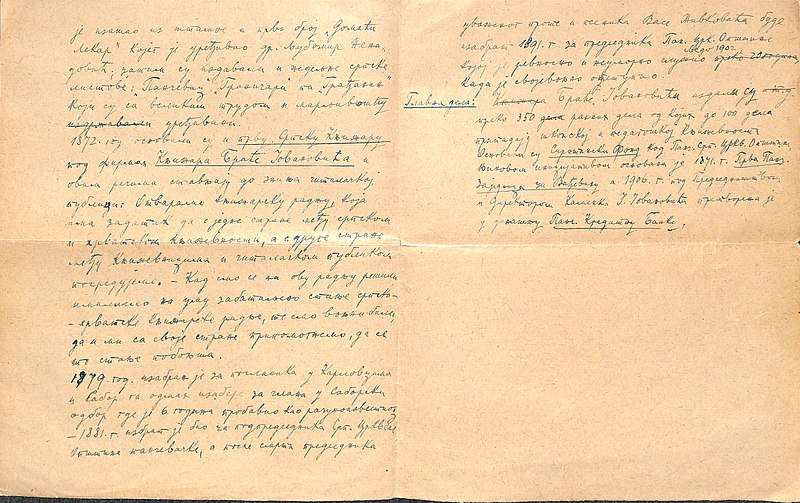 је изашао из штампе и први број „Домаћи
Лекар" којег је уређивао др. Љубомир Нена-
довић; затим су издавали и недељне српске
листове: Панчевац, Граничари па „Грађанин"
Који су са великим трудом и марљивошћу
уређивали.
1872. год основали су и прву Српску Књижару
под фирмом Књижара Браће Јовановића и
овим речима стављају до знања читалачкој
публици: Отварамо књижарску радњу, која
има задатак да с једне стране међу српском
и хрватском Књижевности, а с друге стране
међу Књижевницима и читалачком публиком
посредујемо. – Кад смо се на ову радњу решили
имали смо на уму забатаљено стање српско-
-хрватске књижарске радње, те смо вољни били,
да и ми са своје стране припомогнемо, да се
то стање побољша.
1879. год. изабран је за посланика у Карловцима
и Сабор га одмах изабере за члана у Саборски
одбор где је 6 година пробавио као
– 1881. г. изабрат је био за подпредседника Срп. Црквене
Општине панчевачке, а после смрти председника
уваженог проте и песника Васе Живковића буде
изабрат 1891. г. за председника Пан. црк. Општине
којој је ревносно и неуморно служио до 1902
када је својевољно отступио.
Главна дела: Браће Јовановићи издали су
преко 350 дела разних дела од којих до 100 дела
припадају школској и педагошкој Књижевности
Основали су Сиротињски Фонд код Пан. Срп. Цркв. Општине,
Његовом иницијативом основана је 1871. г. Прва Панч.
Задруга за а 1906. г. под Председништвом
и Директором Каменка Ј. Јовановића претворена је
у данашњу Панч. Кредитну Банку.